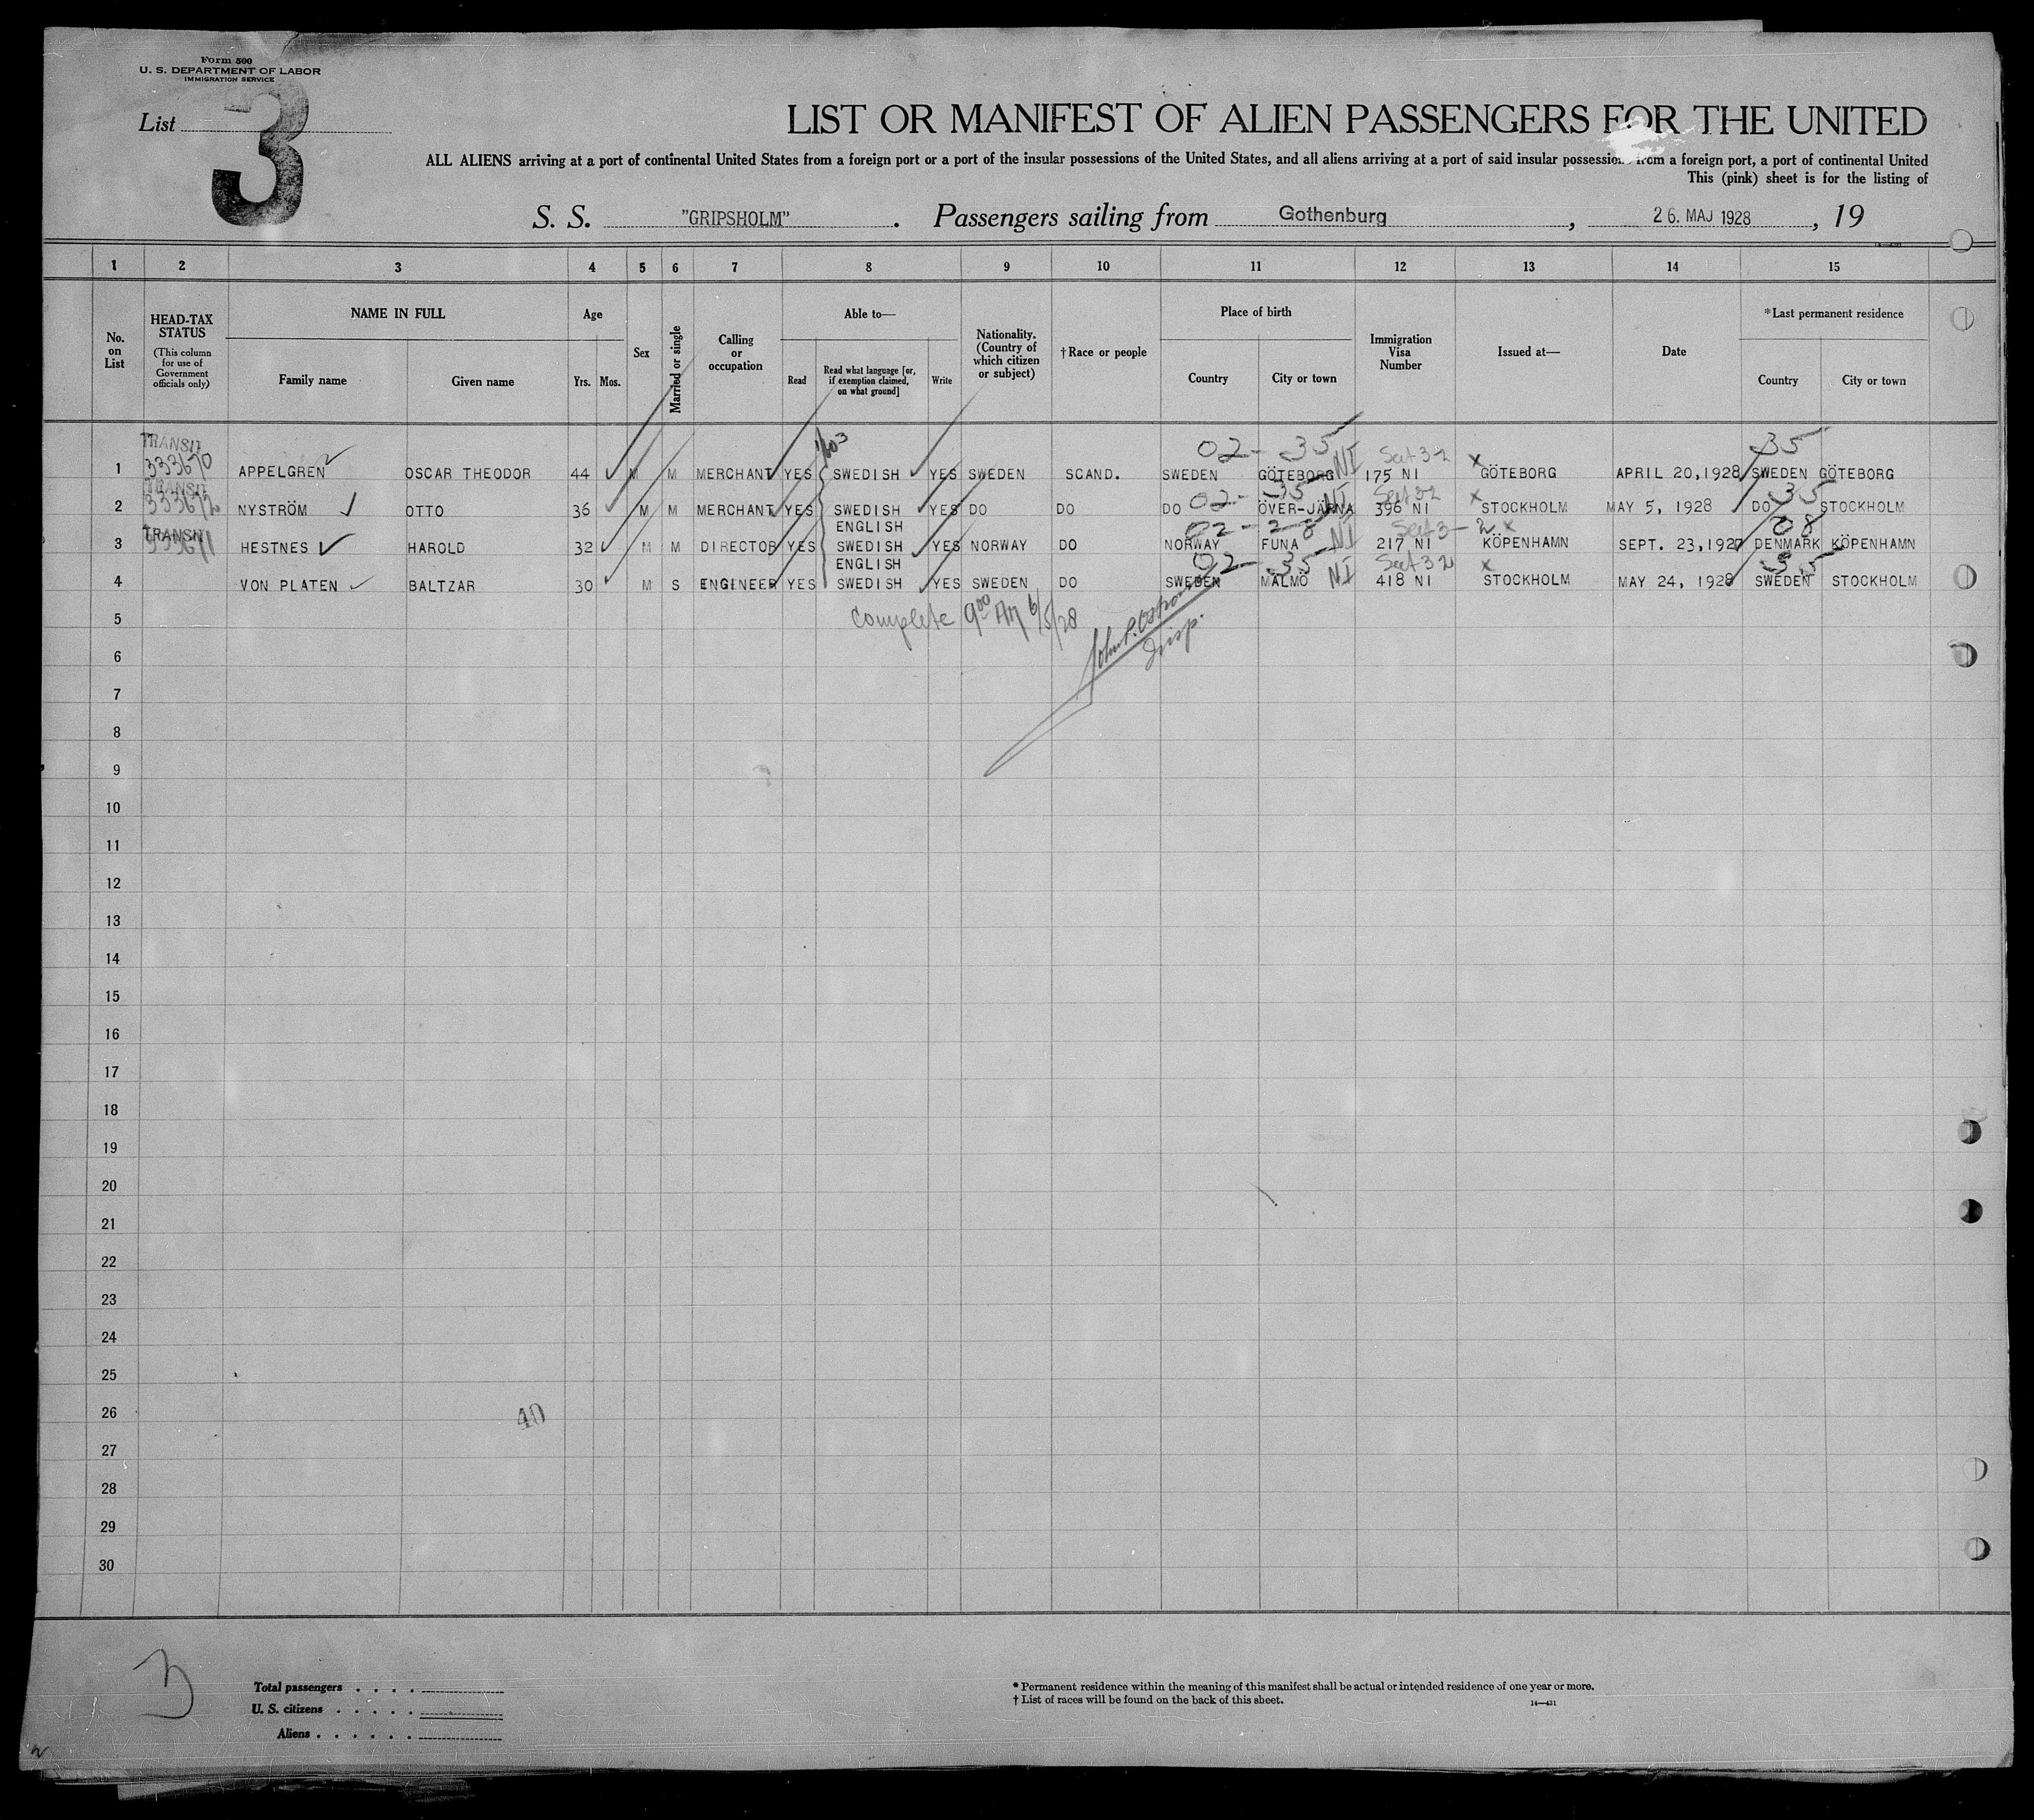 Form 500
U. S. DEPARTMENT OF LABOR
IMMIGRATION SERVICE
List 3
LIST OR MANIFEST OF ALIEN PASSENGERS FOR THE UNITED
ALL ALIENS arriving at a port of continental United States from a foreign port or a port of the insular possessions of the United States, and all aliens arriving at a port of said insular possessions from a foreign port, a port of continental United
This (pink) sheet is for the listing of
S. S. "GRIPSHOLM" . Passengers sailing from Gothenburg , 26. MAJ 1928 , 19
1 2 3 4 5 6 7 8 9 10 11 12 13 14 15
No. on List
HEAD-TAX STATUS
(This column for use of Government officials only)
NAME IN FULL
Family name Given name
Age
Yrs. Mos.
Sex
Married or single
Calling or occupation
Able to—
Read Read what language [or, if exemption claimed, on what ground] Write
Nationality. (Country of which citizen or subject)
†Race or people
Place of birth
Country City or town
Immigration Visa Number
Issued at—
Date
*Last permanent residence
Country City or town
TRANSIT 02-35 35
1 333670 APPELGREN OSCAR THEODOR 44 M M MERCHANT YES SWEDISH YES SWEDEN SCAND. SWEDEN GÖTEBORG NI 175 NI x GÖTEBORG APRIL 20,1928 SWEDEN GÖTEBORG
TRANSIT 02-35 35
2 333672 NYSTRÖM OTTO 36 M M MERCHANT YES SWEDISH YES DO DO DO ÖVER-JÄRNA NI 396 NI x STOCKHOLM MAY 5, 1928 DO STOCKHOLM
TRANSIT ENGLISH 02-28 08
3 333671 HESTNES HAROLD 32 M M DIRECTOR YES SWEDISH YES NORWAY DO NORWAY FUNA NI 217 NI x KÖPENHAMN SEPT. 23,1927 DENMARK KÖPENHAMN
ENGLISH 02-35 35
4 VON PLATEN BALTZAR 30 M S ENGINEER YES SWEDISH YES SWEDEN DO SWEDEN MALMÖ NI 418 NI x STOCKHOLM MAY 24, 1928 SWEDEN STOCKHOLM
5 Complete 9 00 AM 6/5/28
John P. Insp.
6
7
8
9
10
11
12
13
14
15
16
17
18
19
20
21
22
23
24
25
26 40
27
28
29
30
3
Total passengers
U. S. citizens
Aliens
* Permanent residence within the meaning of this manifest shall be actual or intended residence of one year or more.
† List of races will be found on the back of this sheet. 14—431